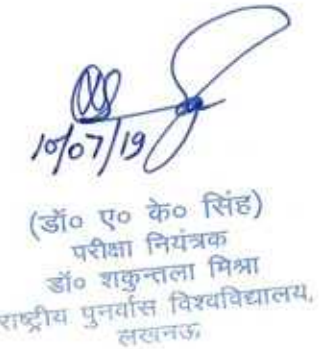 10/07/19
(डॉ० ए० के० सिंह)
परीक्षा नियंत्रक
डॉ० शकुन्तला मिश्रा
राष्ट्रीय पुनर्वास विश्वविद्यालय,
लखनऊ